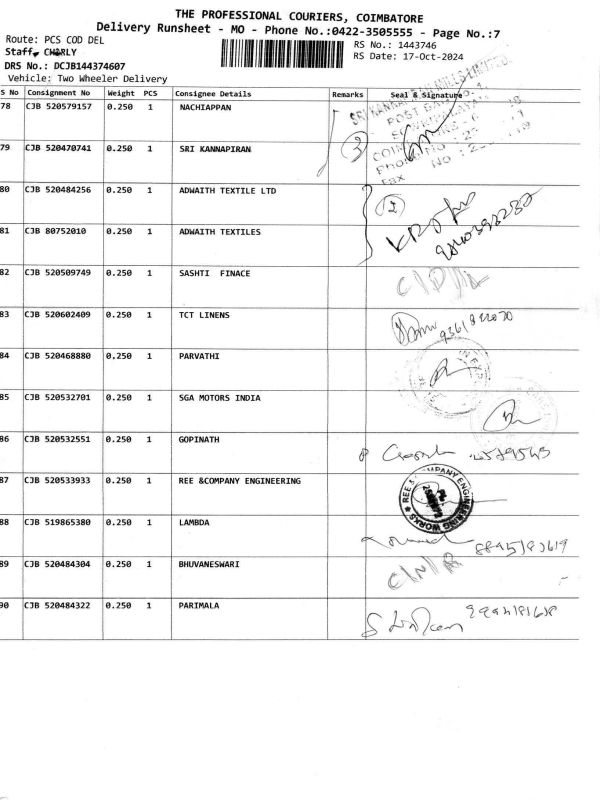 THE PROFESSIONAL COURIERS, COIMBATORE
Delivery Runsheet - MO - Phone No.:0422-3505555 - Page No.:7
Route: PCS COD DEL
RS No.: 1443746
Staff: CHARLY
RS Date: 17-Oct-2024
DRS No.: DCJB144374607
Vehicle: Two Wheeler Delivery
S No Consignment No Weight PCS Consignee Details Remarks Seal & Signature
78 CJB 520579157 0.250 1 NACHIAPPAN
79 CJB 520470741 0.250 1 SRI KANNAPIRAN
3
80 CJB 520484256 0.250 1 ADWAITH TEXTILE LTD
2
81 CJB 80752010 0.250 1 ADWAITH TEXTILES
82 CJB 520509749 0.250 1 SASHTI FINACE
83 CJB 520602409 0.250 1 TCT LINENS
84 CJB 520468880 0.250 1 PARVATHI
85 CJB 520532701 0.250 1 SGA MOTORS INDIA
86 CJB 520532551 0.250 1 GOPINATH
87 CJB 520533933 0.250 1 REE &COMPANY ENGINEERING
88 CJB 519865380 0.250 1 LAMBDA
89 CJB 520484304 0.250 1 BHUVANESWARI
90 CJB 520484322 0.250 1 PARIMALA